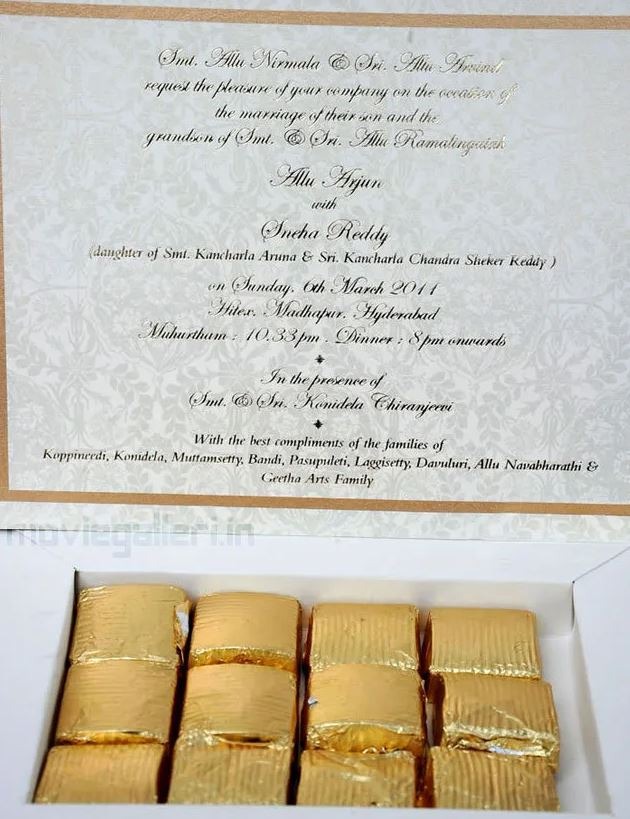 Smt. Allu Nirmala & Sri. Allu Arvind
request the pleasure of your company on the occasion of
the marriage of their son and the
grandson of Smt. & Sri. Allu Ramalingaiah
Allu Arjun
with
Sneha Reddy
(daughter of Smt. Kancharla Aruna & Sri. Kancharla Chandra Sheker Reddy )
on Sunday, 6th March 2011
Hitex, Madhapur, Hyderabad
Muhurtham : 10.33pm . Dinner : 8pm onwards
In the presence of
Smt. & Sri. Konidela Chiranjeevi
With the best compliments of the families of
Koppineedi, Konidela, Muttamsetty, Bandi, Pasupuleti, Laggisetty, Davuluri, Allu Navabharathi &
Geetha Arts Family
moviegalleri.in